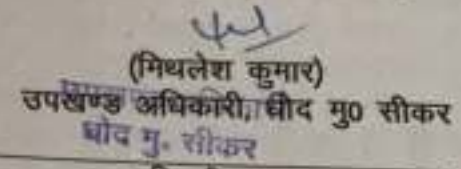 (मिथलेश कुमार)
उपखण्ड अधिकारी, धोद मु0 सीकर
धोद मु. सीकर